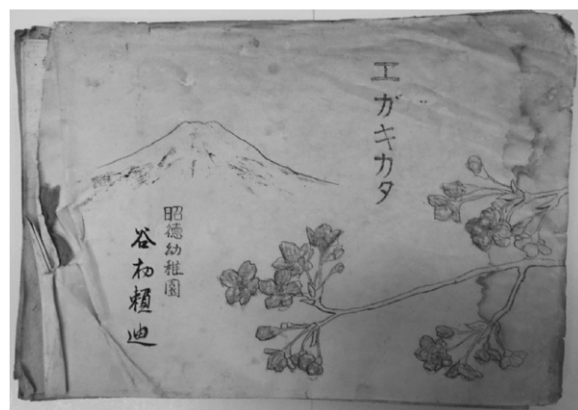 エガキカタ
昭徳幼稚園
谷杓頼迪